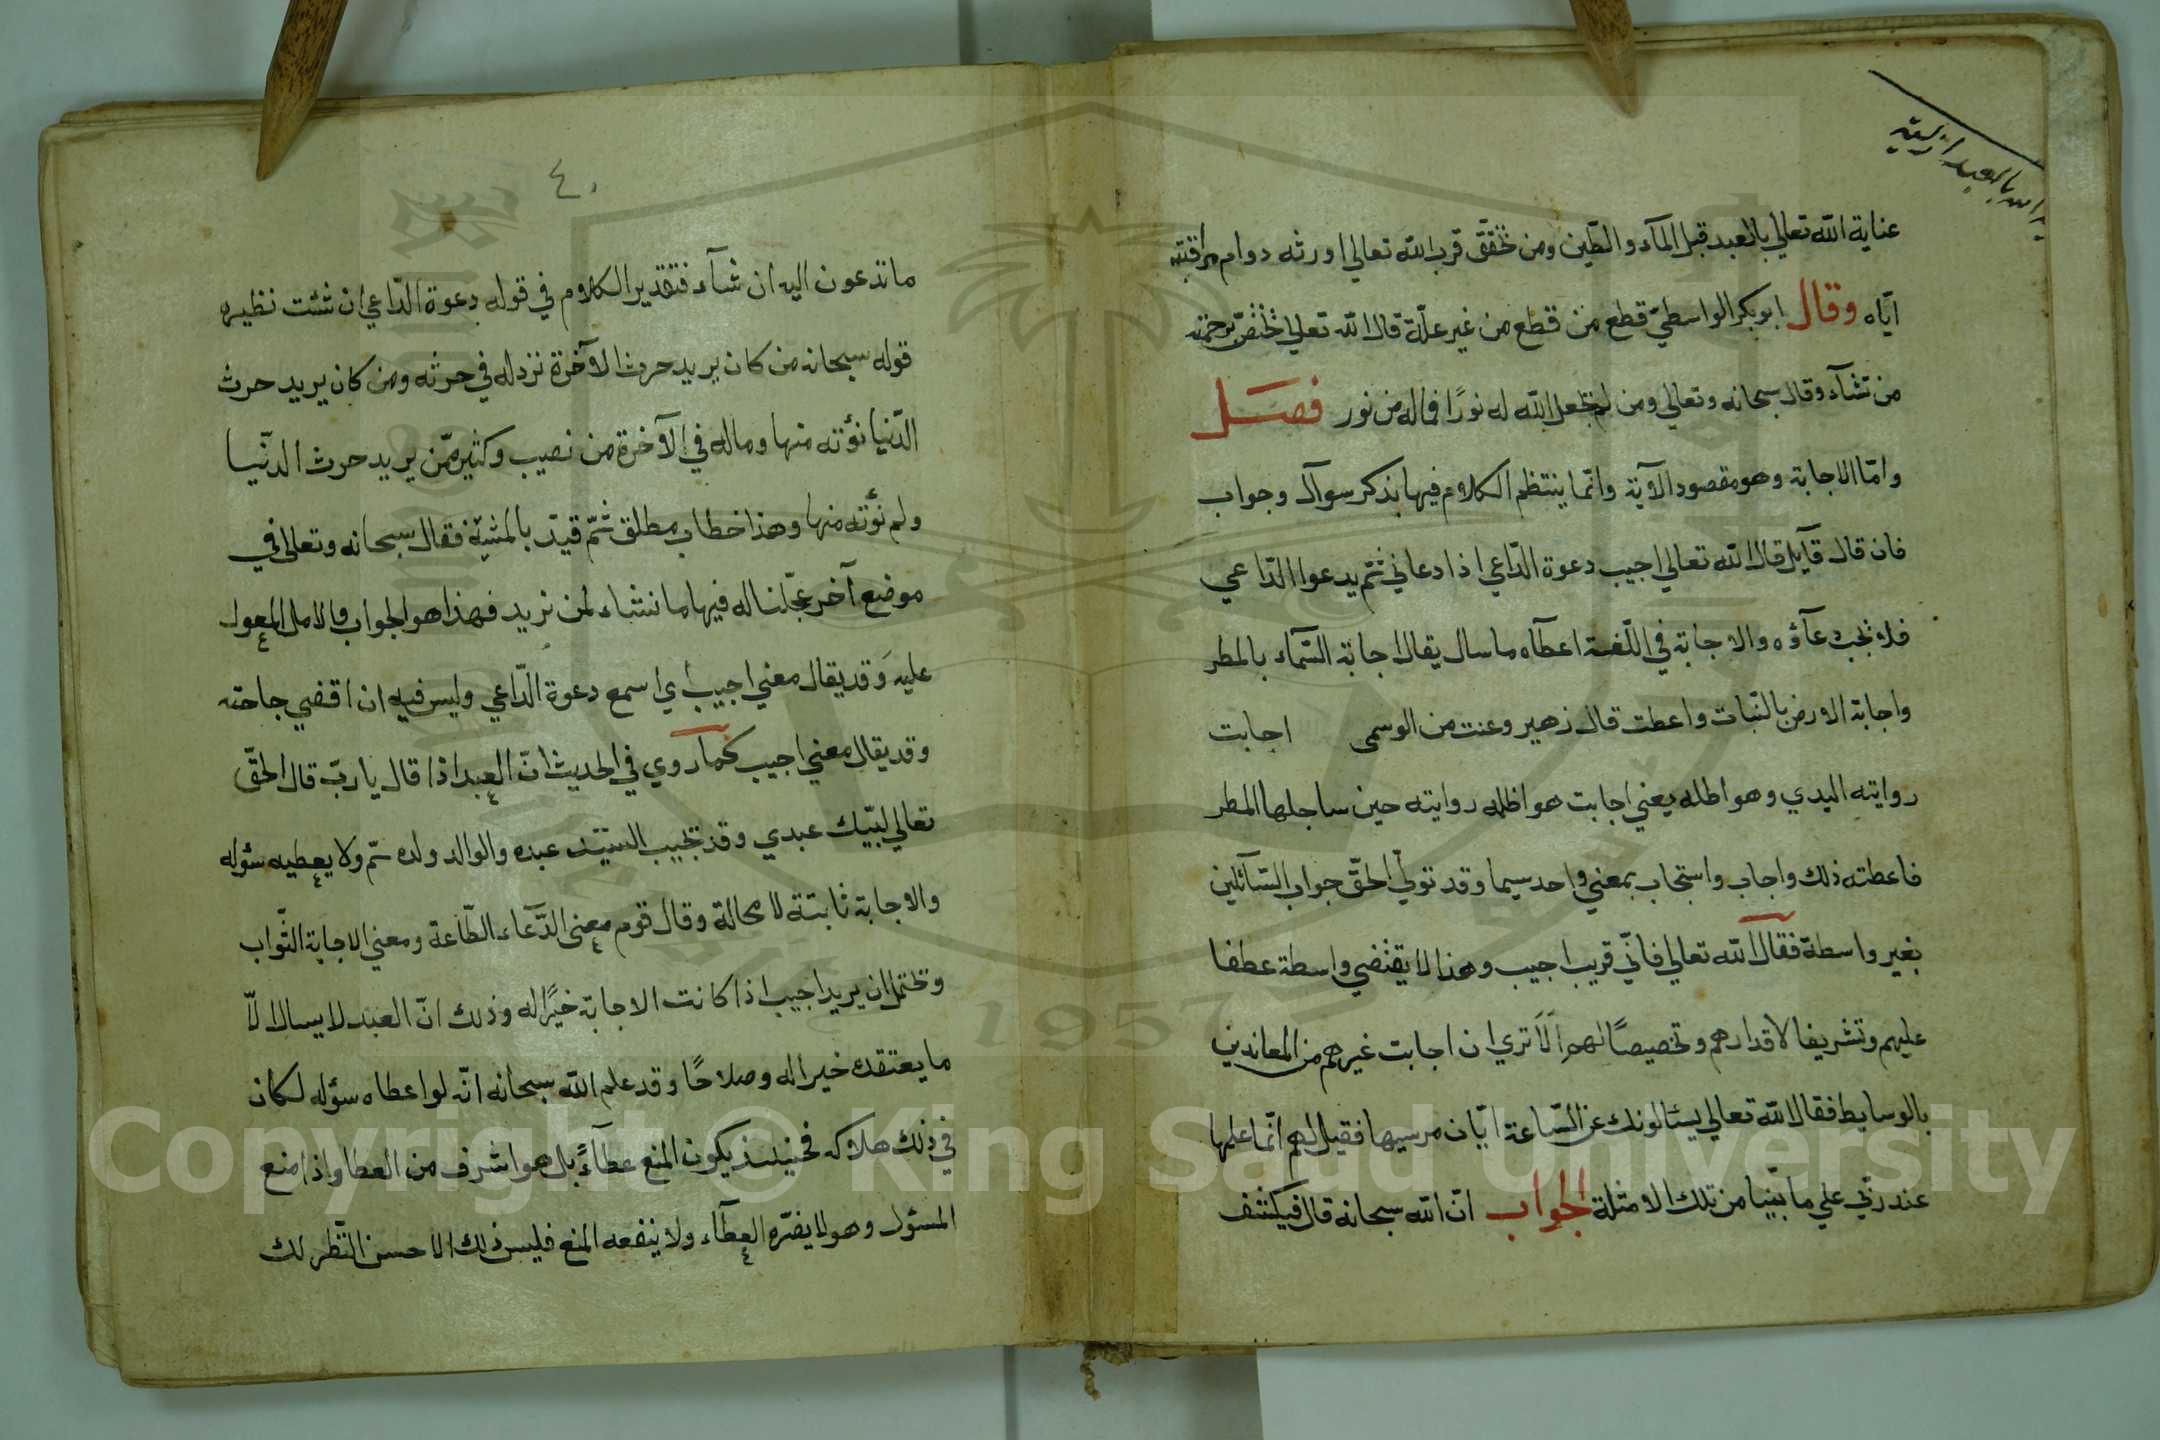 عناية الله تعالي بالعبد قبل المآء والطّين ومن تحقّق قرب الله تعالي اورثه دوام مراقبته
ايّاه وقال ابوبكر الواسطيّ قطع من قطع من غير علّة قال الله تعالي يختصّ برحمته
من تشآء وقال سبحانه وتعالي ومن لم يجعل الله له نورًا فماله من نور فصل
وامّا الاجابة وهو مقصود الآية وانّما ينتظم الكلام فيها بذكر سوال وجواب
فان قال قايل قال الله تعالي اجيب دعوة الدّاعي اذا دعاني ثم يدعوا الدّاعي
فلا تجب دعآؤه والاجابة في اللّغة اعطآء ما سال يقال اجابة السّمآء بالمطر
واجابة الارض بالنّبات واعطت قال زهير وعنت من الوسمى اجابت
روايته اليدي وهواطله يعني اجابت هواظله روايته حين ساجلها المطر
فاعطته ذلك واجاب واستجاب بمعني واحد سيما وقد تولّي الحقّ جواب السّآئلين
بغير واسطة فقال الله تعالي فانّي قريب اجيب وهذا لا يقتضي واسطة عطفا
عليهم وتشريفا لاقدارهم وتخصيصًا لهم الا تري ان اجابت غيرهم من المعاندين
بالوسايط فقال الله تعالي يسئالونك عن السّاعة ايّان مرسيها فقيل لهم انّما علمها
عند ربّي علي ما بيّنا من تلك الامثلة الجواب انّ الله سبحانه قال فيكشف
٤٠
ما تدعون اليه ان شآء فتقدير الكلام في قوله دعوة الدّاعي ان شئت نظيره
قوله سبحانه من كان يريد حرث الآخرة نزد له في حرثه ومن كان يريد حرث
الدّنيا نؤته منها وماله في الآخرة من نصيب وكثير ممّن يريد حرث الدّنيا
ولم نؤته منها وهذا خطاب مطلق ثمّ قيّد بالمشيّة فقال سبحانه وتعالي في
موضع آخر عجّلنا له فيها ما نشاء لمن نريد فهذا هو الجواب والامل المعول
عليه وقد يقال معني اجيب اي اسمع دعوة الدّاعي وليس فيه ان اقضي حاجته
وقد يقال معني اجيب كما روي في الحديث انّ العبد اذا قال يا ربّ قال الحقّ
تعالي لبّيك عبدي وقد تجيب السّيّد عبده والوالد ولده ثمّ ولا يعطيه سؤله
والاجابة ثابتة لا محالة وقال قوم معني الدّعآء الطّاعة ومعني الاجابة الثّواب
وتحتمل ان يريد اجيب اذا كانت الاجابة خيرًا له وذلك انّ العبد لا يسال الاّ
ما يعتقده خيرا له وصلاحًا وقد علم الله سبحانه انّه لو اعطاه سؤله لكان
في ذلك هلاكه فحينئذ يكون المنع عطآءً بل هو اشرف من العطا واذا منع
المسؤل وهو لا يضرّه العطآء ولا ينفعه المنع فليس ذلك الا حسن النّظر لك
1957
Copyright © King Saud University